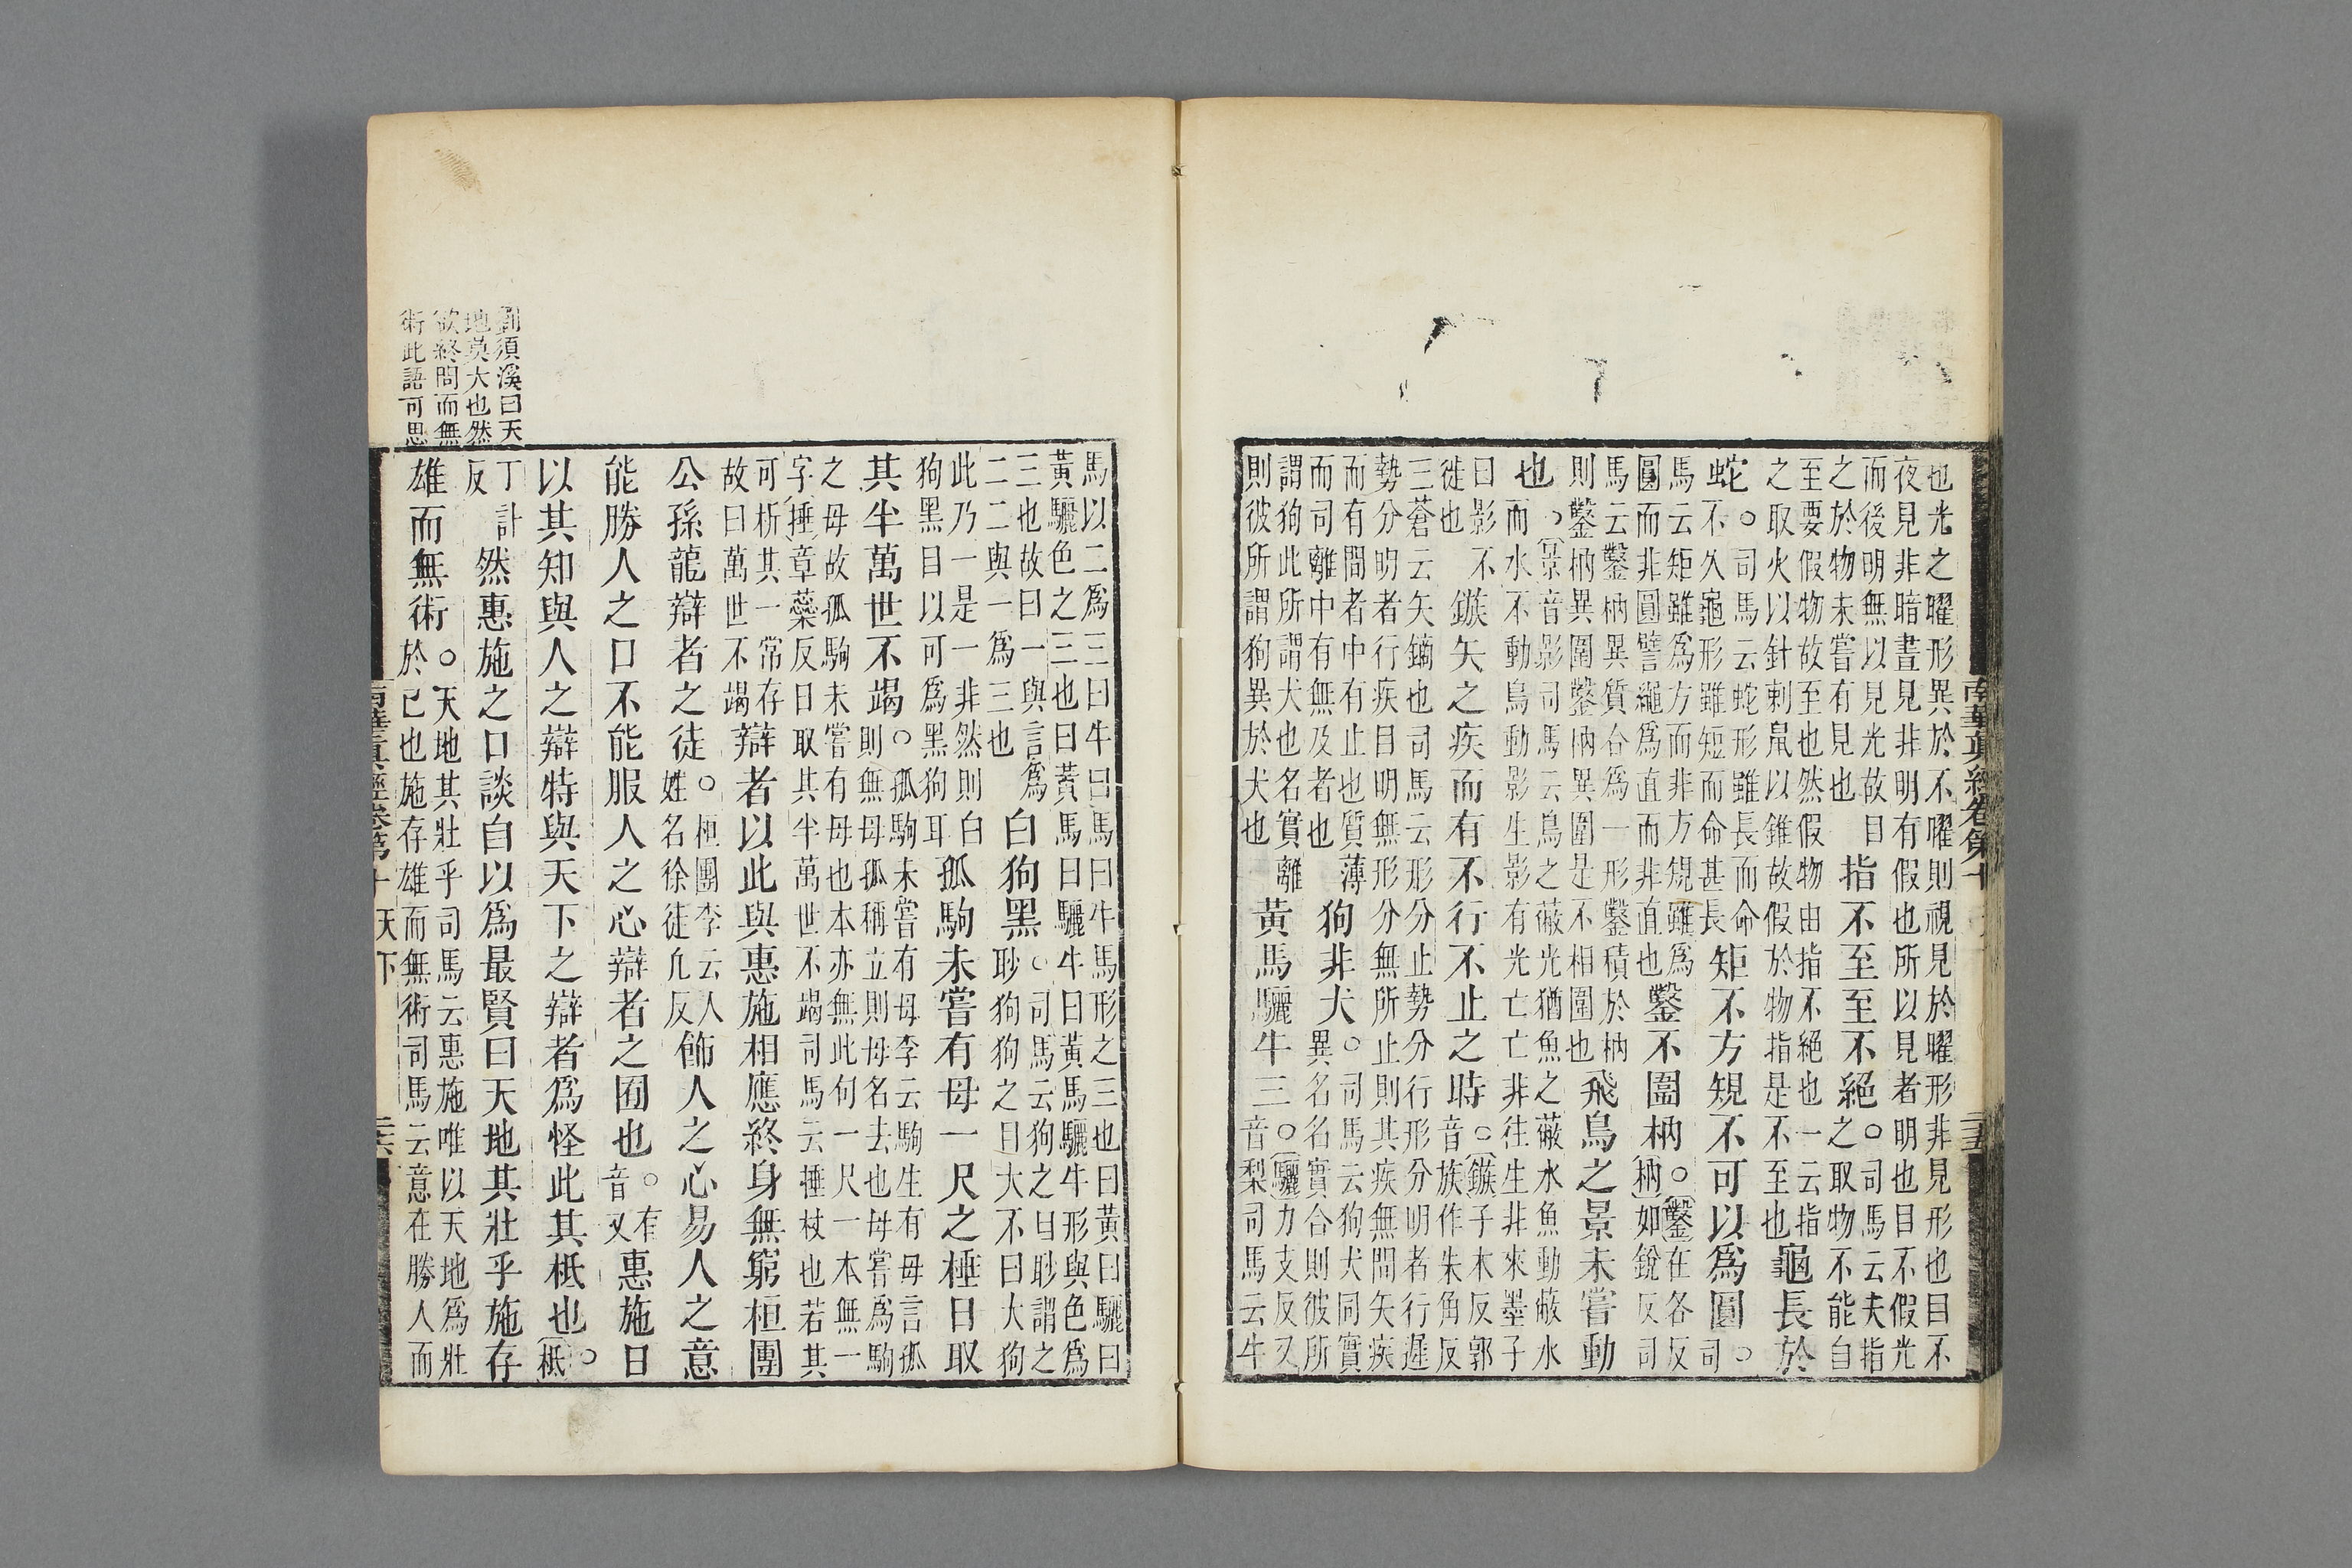 也光之曜形異於不曜則視見於曜形非見形也目不
夜見非暗晝見非明有假也所以見者明也目不假光
而後明無以見光故目
之於物未嘗有見也
指不至至不絕
○司馬云夫指
之取物不能自
至要假物故至也然假物由指不絕也一云指
之取火以針刺鼠以錐故假於物指是不至也
龜長於
蛇
○司馬云蛇形雖長而命
不久龜形雖短而命甚長
矩不方規不可以爲圓
○
司
馬云矩雖爲方而非方規雖爲
圓而非圓譬繩爲直而非直也
鑿不圍枘
○鑿在各反
枘如銳反司
馬云鑿枘異質合爲一形鑿積於枘
則鑿枘異圍鑿枘異圍是不相圍也
飛鳥之景未嘗動
也
○景音影司馬云鳥之蔽光猶魚之蔽水魚動蔽水
而水不動鳥動影生影有光亡亡非往生非來墨子
曰影不
徙也
鏃矢之疾而有不行不止之時
○鏃子木反郭
音族作朱角反
三蒼云矢鏑也司馬云形分止勢分行形分明者行遲
勢分明者行疾目明無形分無所止則其疾無間矢疾
而有間者中有止也質薄
而司離中有無及者也
狗非犬
○司馬云狗犬同實
異名名實合則彼所
謂狗此所謂犬也名實離
則彼所謂狗異於犬也
黃馬驪牛三
○驪力支反又
音梨司馬云牛
南華眞經卷第十
二五
馬以二爲三曰牛曰馬曰牛馬形之三也曰黃曰驪曰
黃驪色之三也曰黃馬曰驪牛曰黃馬驪牛形與色爲
三也故曰一與言爲
二二與一爲三也
白狗黑
○司馬云狗之目眇謂之
眇狗狗之目大不曰大狗
此乃一是一非然則白
狗黑目以可爲黑狗耳
孤駒未嘗有母一尺之棰日取
其半萬世不竭
○孤駒未嘗有母李云駒生有母言孤
則無母孤稱立則母名去也母嘗爲駒
之母故孤駒未嘗有母也本亦無此句一尺一本無一
字捶章蘂反日取其半萬世不竭司馬云捶杖也若其
可析其一常存
故曰萬世不竭
辯者以此與惠施相應終身無窮桓團
公孫龍辯者之徒
○桓團李云人
姓名徐徒丸反
飾人之心易人之意
能勝人之口不能服人之心辯者之囿也
○有
音又
惠施日
以其知與人之辯特與天下之辯者爲怪此其柢也
○
柢
丁計
反
然惠施之口談自以爲最賢曰天地其壯乎施存
雄而無術
○天地其壯乎司馬云惠施唯以天地爲壯
於己也施存雄而無術司馬云意在勝人而
劉須溪曰天
地莫大也然
欲終問而無
術此語可思
南華眞經卷第十 天下
二六